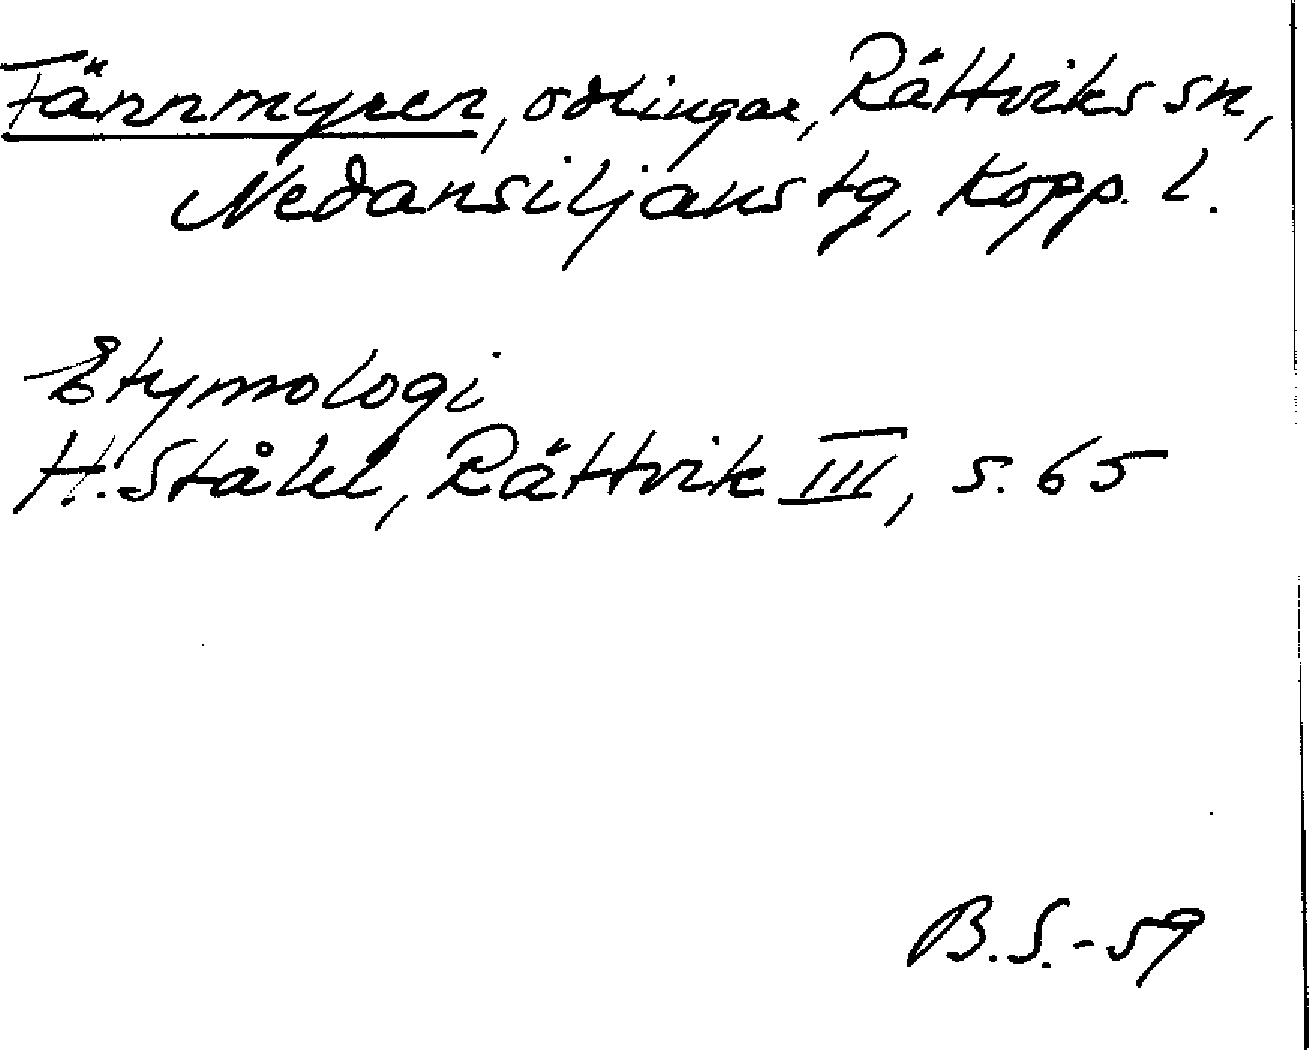 Fännmyren, odlingar, Rättviks sn,
Nedansiljans tg, Kopp. l.
Etymologi
H. Ståhl, Rättvik III, s. 65
B.S.-59